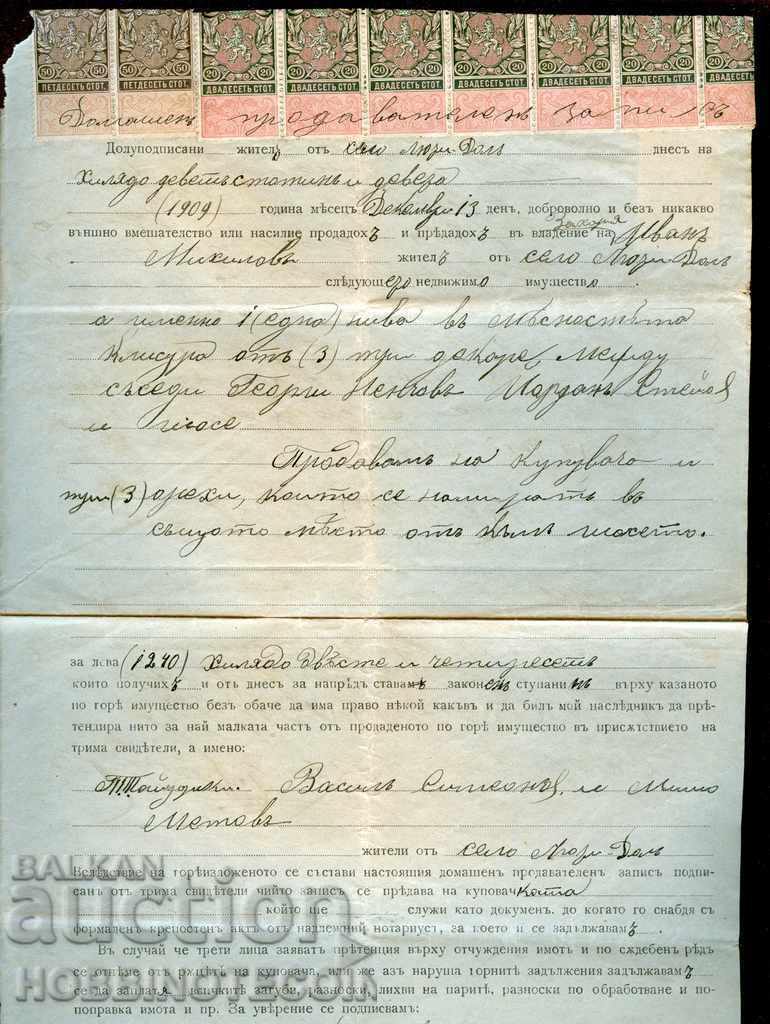 50 50 50 50 20 20 20 20 20 20 20 20 20 20 20 20 20
ПЕТДЕСЕТЬ СТОТ. ПЕТДЕСЕТЬ СТОТ. ДВАДЕСЕТЬ СТОТ. ДВАДЕСЕТЬ СТОТ. ДВАДЕСЕТЬ СТОТ. ДВАДЕСЕТЬ СТОТ. ДВАДЕСЕТЬ СТОТ. ДВАДЕСЕТЬ СТОТ. ДВАДЕСЕТЬ
Домашенъ продавателенъ записъ
Долуподписани жителъ отъ село Люти-Долъ днесъ на
хилядо деветьстотинъ и девета
(1909) година мѣсецъ Декемврий 13 денъ, доброволно и безъ никакво
Захария
външно вмешателство или насилие продадохъ и прѣдадохъ въ владение на Иванъ
Михиловъ жителъ отъ село Люти-Долъ
следующето недвижимо имущество
а именно 1 (една) нива въ мѣстностьта
Клисура отъ (3) три декара, между
съседи Георги Ненчовъ Йорданъ Стеловъ
и шосе
Продавамъ на купувача и
три (3) орехи, които се намиратъ въ
същото мѣсто отъ къмъ шосето.
за лева (1240) хилядо двѣсте и четиресеть
които получихъ и отъ днесъ за напрѣдъ ставамъ законенъ ступанинъ върху казаното
по горѣ имущество безъ обаче да има право нѣкой какъвъ и да билъ мой наслѣдникъ да прѣ-
тендира нито за най малката часть отъ продаденото по горѣ имущество въ присѫтствието на
трима свидѣтели, а имено:
Василъ Симеоновъ, и Мито
Метовъ
жители отъ село Люти-Долъ
Вследствие на горѣизложеното се състави настоящия домашенъ продавателенъ записъ подпи-
санъ отъ трима свидѣтели чийто записъ се прѣдава на куповачката
който ще служи като документъ. до когато го снабдя съ
формаленъ крепостенъ актъ отъ надлежний нотариусъ, за което и се задължавамъ
Въ случай че трети лица заяватъ прѣтенция върху отчуждения имотъ и по сѫдебенъ редъ
се отнѣме отъ рѫцѣтѣ на куповача, или же азъ наруша горнитѣ задължения задължавамъ
се да заплатя всичкитѣ загуби, разноски, лихви на паритѣ, разноски по обработвание и по-
поправка имота и пр. За уверение се подписвамъ:
BALKAN
auction
HOBBINOTE.COM